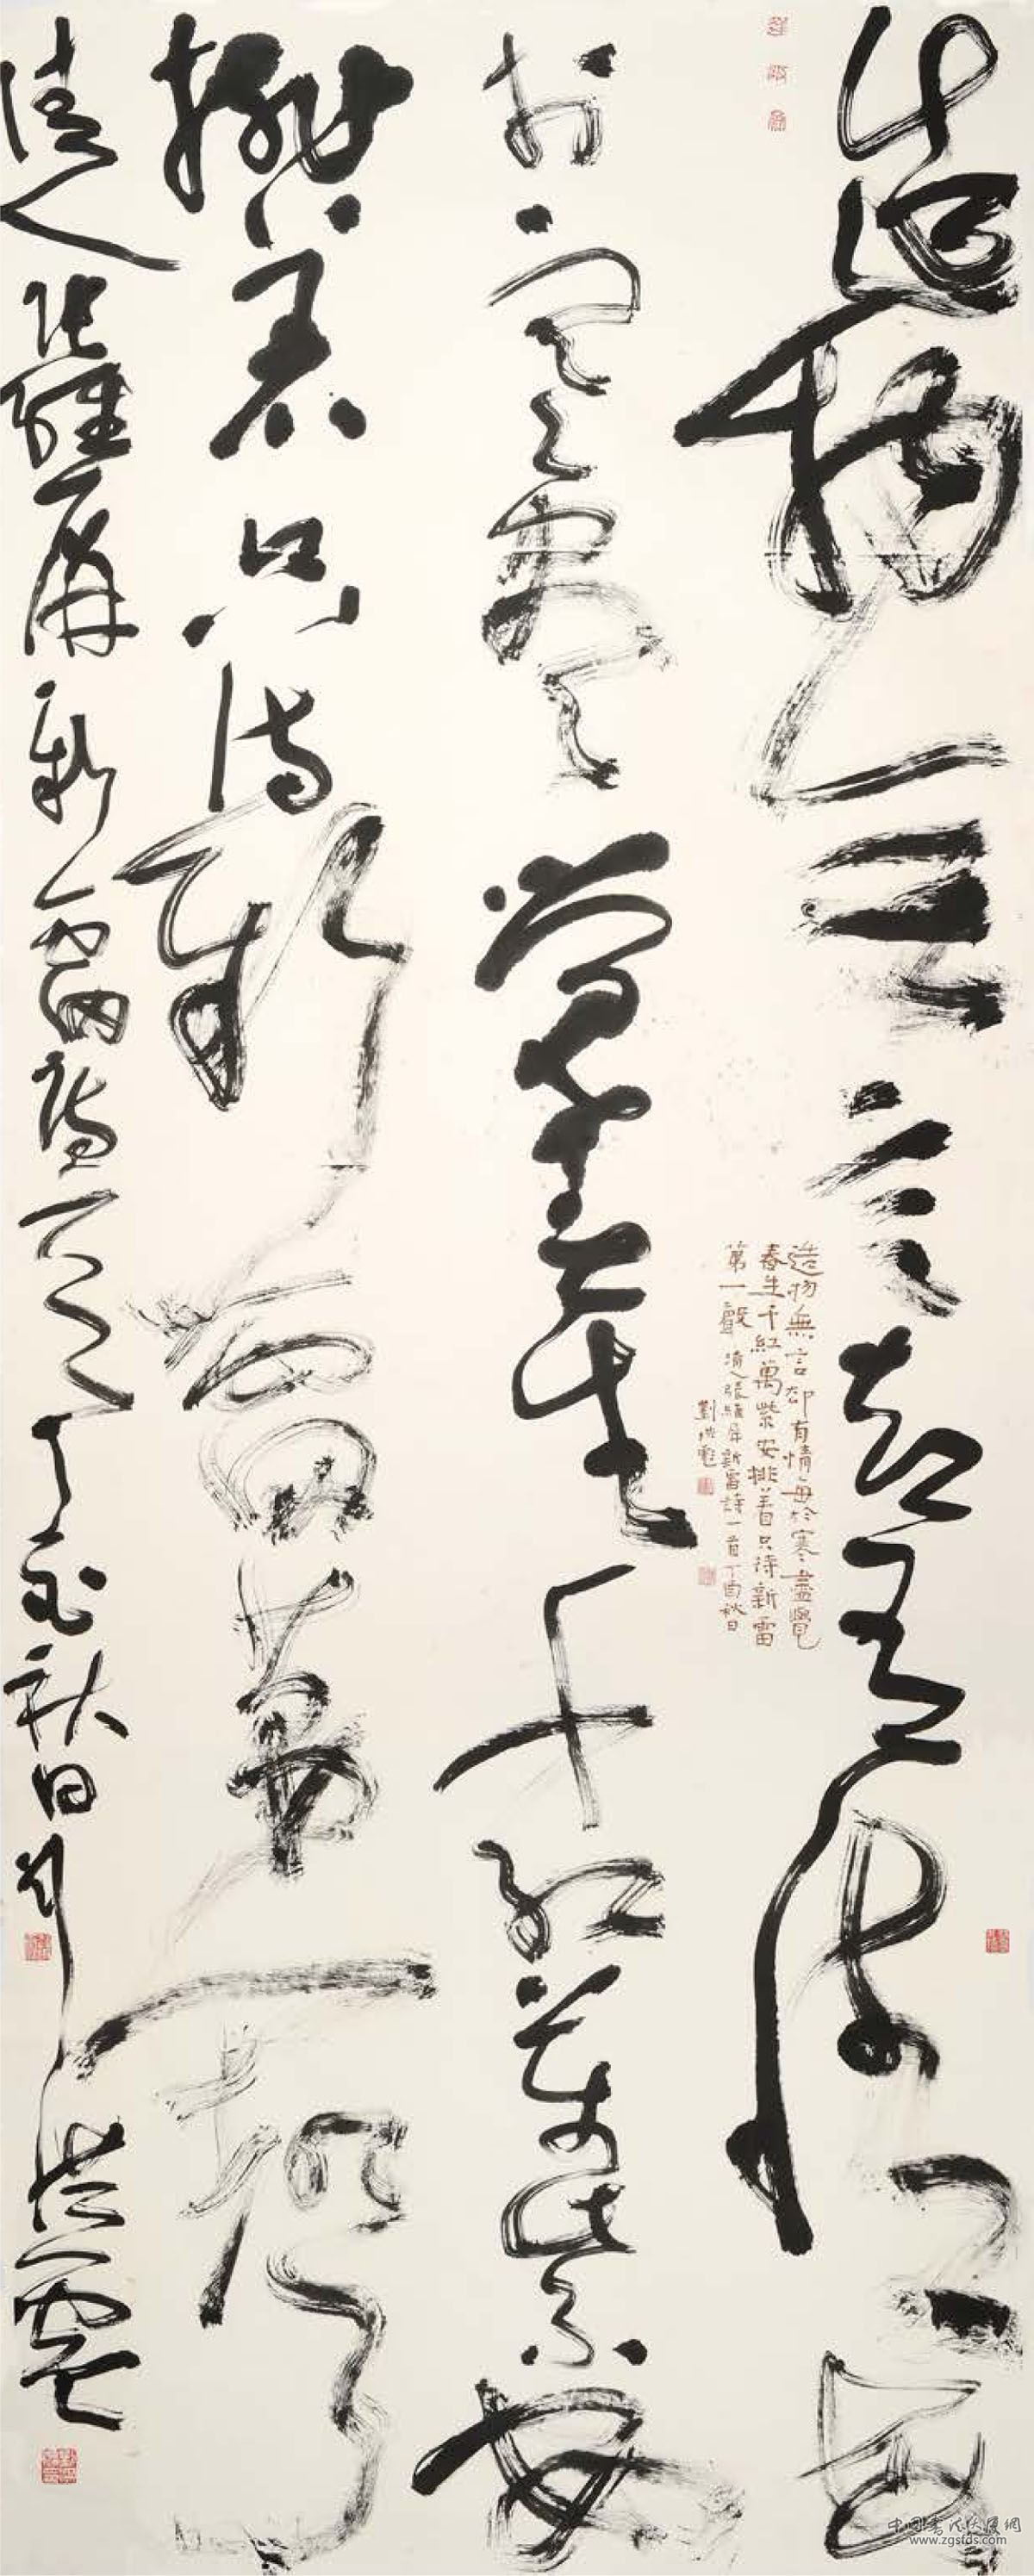 造物無言却有情每
於寒盡覺春生千紅萬紫安
排着只待新雷第一聲
清人張維屏新雷詩一首丁酉秋日劉洪彪
造物無言却有情每於寒盡覺
春生千紅萬紫安排着只待新雷
第一聲清人張維屏新雷詩一首丁酉秋日
劉洪彪
www.zgsfds.com